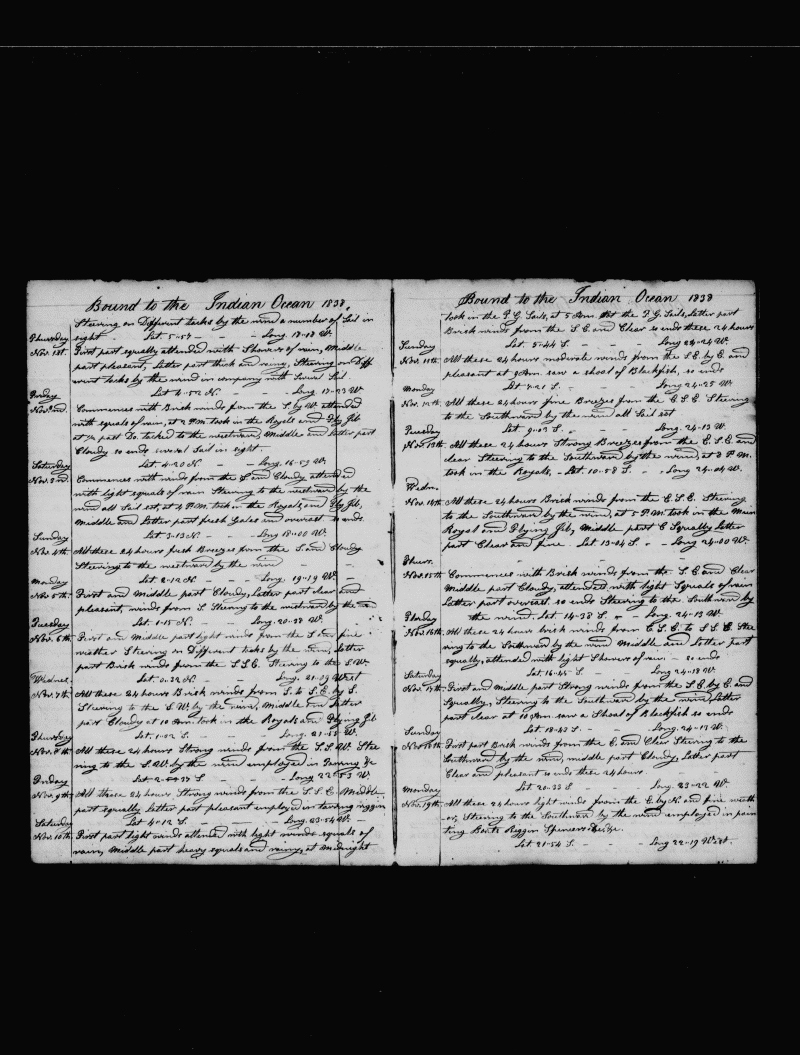 Bound to the Indian Ocean 1838.
Steering on Different tacks by the wind a number of Sail in
sight. Lat. 5-57 - - - Long. 18-18 W.
Thursday
Nov. 1st. First part squally attended with Showers of rain, Middle
part pleasant, Latter part thick and rainy, Steering on Diff
erent tacks by the wind in company with Several Sail
Lat 4-52 N. - - - Long. 17-23 W.
Friday
Nov. 2nd. Commences with Brisk winds from the S. by W. attended
with squals of rain, at 2 P.M. took in the Royals and Fly Jib
at 1/2 past Do. tacked to the westward, Middle and Latter part
Cloudy so ends several Sail in sight.
Lat. 4-20 N. - - Long. 16-59 W.
Saturday
Nov. 3rd. Commences with winds from the S. and Cloudy attended
with light squals of rain Steering to the westward by the
wind all Sail set, at 4 P.M. took in the Royals, and Fly Jib,
Middle and Latter part fresh Gales and overcast so ends
Lat. 3-13 N. - - Long 18-00 W.
Sunday
Nov. 4th All these 24 hours fresh Breezes from the S. and Cloudy
Steering to the westward by the wind - - -
Lat 2-12 N. - - Long. 19-19 W. -
Monday
Nov. 5th First and Middle part Cloudy, Latter part clear and
pleasant, winds from S. Steering to the westward by the
Lat. 1-15 N. - - Long. 20-38 W.
Tuesday
Nov. 6th First and Middle part light winds from the S and fine
wether Steering on Different tacks by the Wind, Latter
part Brisk winds from the S.S.E. Steering to the S.W.
Lat. 0-22 N. - - Long. 21-09 West
Wednes.
Nov. 7th All these 24 hours Brisk winds from S. to S.E. by S.
Steering to the S.W. by the wind, Middle and Latter
part Cloudy at 10 Am. took in the Royals and Flying Jib
Lat. 1-02 S. - - - Long. 21-58 W.
Thursday
Nov. 8th All these 24 hours Strong winds from the S.S.W. Stee
ring to the S.W. by the wind employed in Tarring &c
Lat 2-37 S - - - Long 22-53 W.
Friday
Nov. 9th All these 24 hours Strong winds from the S.S.E. Middle
part squally Latter part pleasant employed in tarring riggin
Lat 4-12 S. - - Long. 23-54 W.
Saturday
Nov. 10th. First part light winds attended with light winds squals of
rain, Middle part heavy squals and rainy, at Midnight
Bound to the Indian Ocean 1838
took in the T.G. Sails, at 5 Am. Set the T.G. Sails, Latter part
Brisk winds from the S.E. and Clear so ends these 24 hours
Lat. 5-44 S. - - Long 24-24 W.
Sunday
Nov. 11th All these 24 hours moderate winds from the S.E. by E. and
pleasant at 9 Am. saw a shoal of Blackfish, so ends
Lat 7-21 S. - - - Long 24-25 W.
Monday
Nov. 12th All these 24 hours fine Breezes from the E.S.E. Steering
to the Southward by the wind all Sail set
Lat. 9-03 S. - - Long. 24-12 W.
Tuesday
Nov. 13th All these 24 hours Strong Breezes from the E.S.E. and
clear Steering to the Southward by the wind, at 8 P.M.
took in the Royals, - Lat. 10-58 S. - - Long 24-04 W.
Wedns.
Nov. 14th All these 24 hours Brisk winds from the E.S.E. Steering
to the Southward by the wind, at 5 P.M. took in the Main
Royal and Flying Jib, Middle part Squally, Latter
part Clear and fine. Lat. 13-04 S. - - Long 24-00 W.
Thurs.
Nov. 15th Commences with Brisk winds from the S.E. and Clear
Middle part Cloudy, attended with light Squals of rain
Latter part overcast so ends Steering to the Southward by
the wind. Lat. 14-38 S. - - Long. 24-13 W.
Friday
Nov. 16th. All these 24 hours brisk winds from E.S.E. to S.S.E. Stee
ring to the Southward by the wind Middle and Latter part
squally, attended with light Showers of rain. - so ends
Lat. 16-45 S. - - Long 24-18 W.
Saturday
Nov. 17th. First and middle part Strong winds from the S.E. by E. and
Squally, Steering to the Southward by the wind, Latter
part clear at 10 Am. saw a Shoal of Blackfish so ends
Lat. 18-42 S. - - Long. 24-17 W.
Sunday
Nov. 18th. First part Brisk winds from the E. and Clear Steering to the
Southward by the wind, middle part Cloudy, Latter part
Clear and pleasant so ends these 24 hours - -
Lat. 20-33 S - - Long. 23-22 W.
Monday
Nov. 19th. All these 24 hours light winds from the E. by N. and fine weath
er, Steering to the Southward by the wind employed in pain
ting Boats Riggin Spencers &c.
Lat 21-54 S. - - - Long 22-19 West.